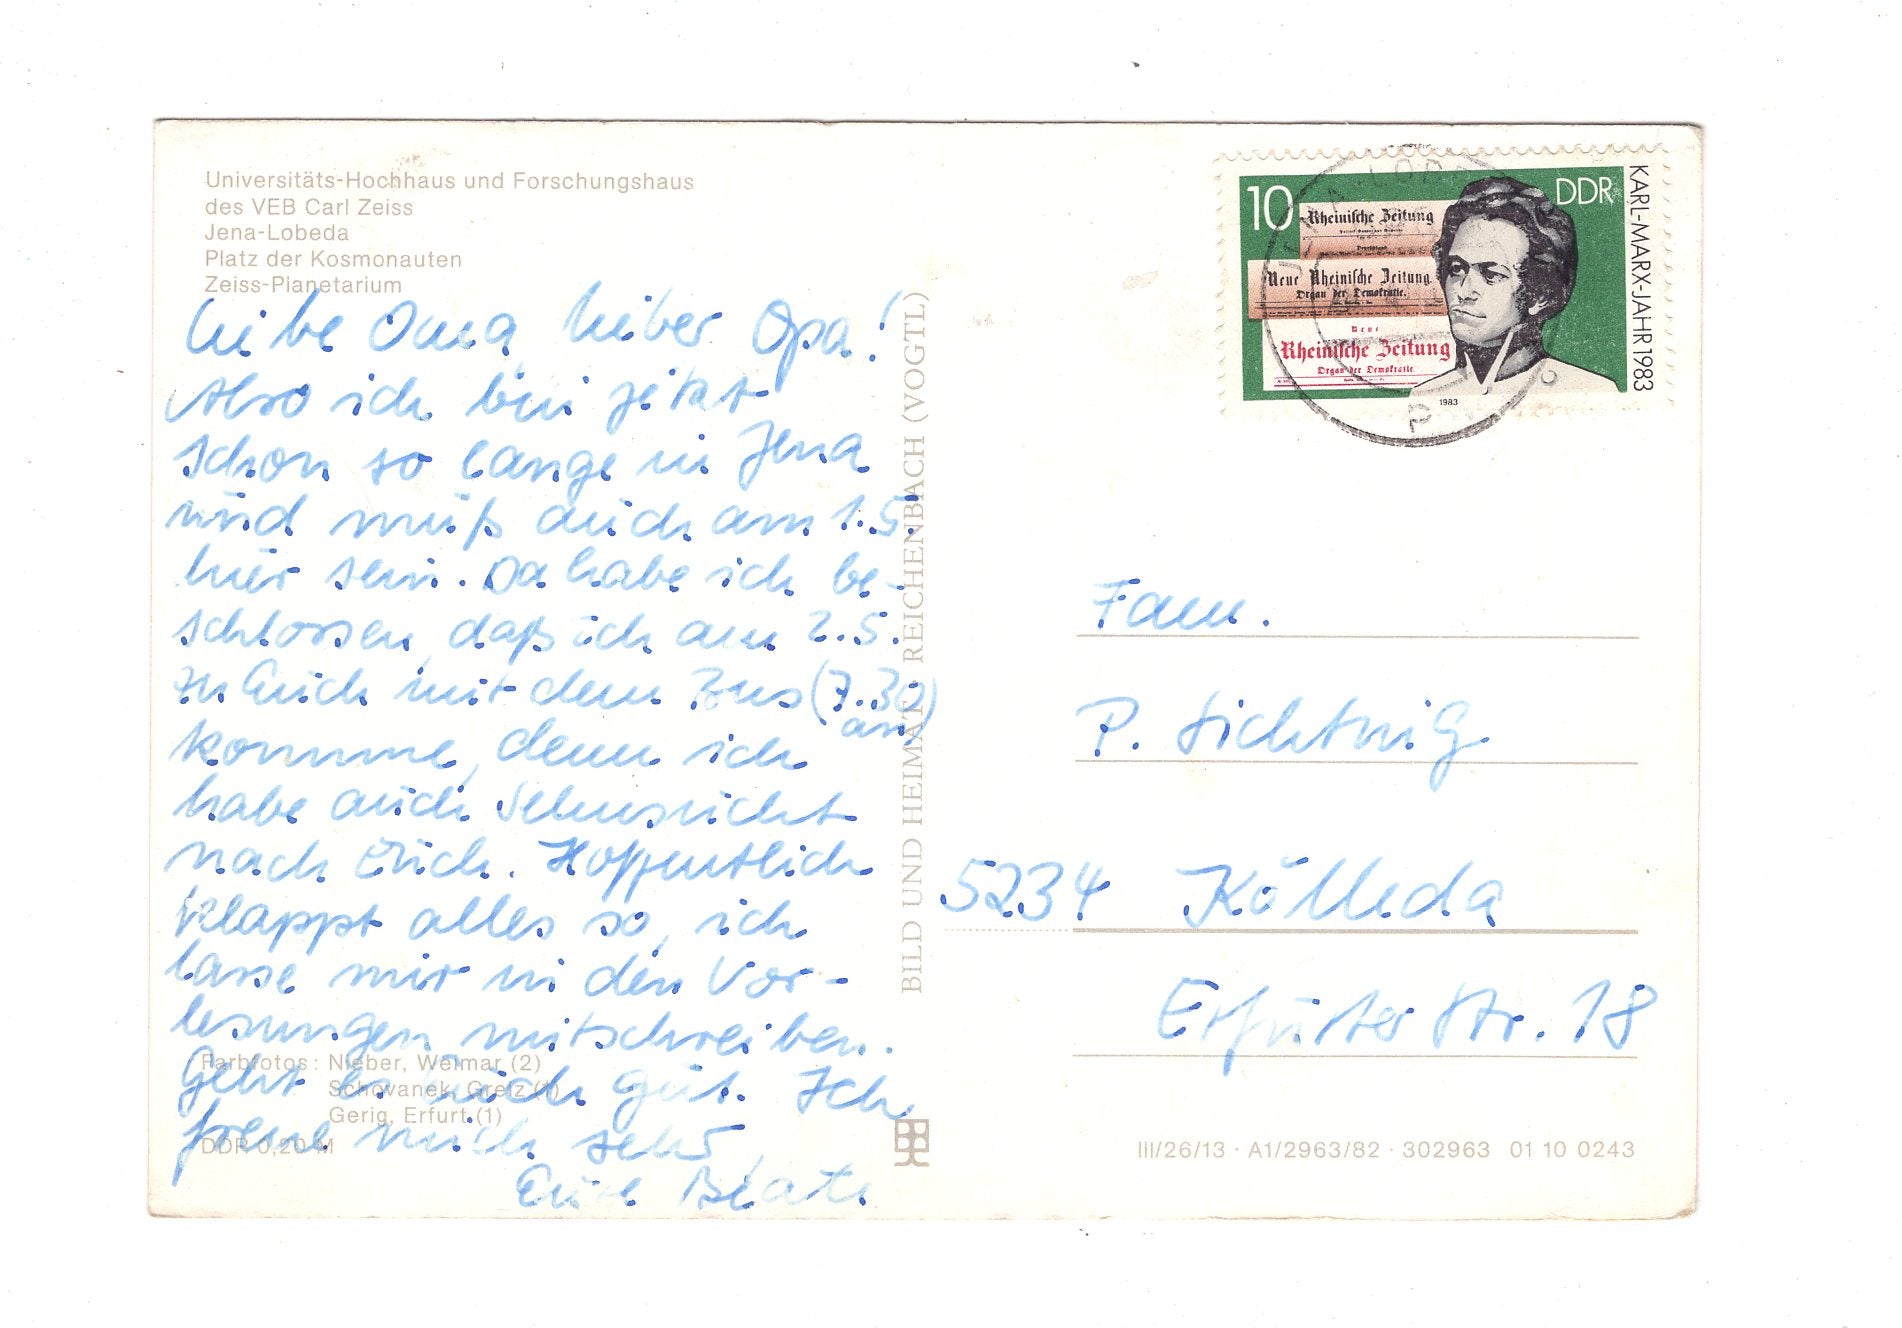 Universitäts-Hochhaus und Forschungshaus
des VEB Carl Zeiss
Jena-Lobeda
Platz der Kosmonauten
Zeiss-Planetarium
Liebe Oma, lieber Opa!
Also ich bin jetzt
schon so lange in Jena
und muß auch am 1.5.
hier sein. Da habe ich be-
schlossen, daß ich am 2.5.
zu Euch mit dem Bus (7.30
an)
komme, denn ich
habe auch Sehnsucht
nach Euch. Hoffentlich
klappt alles so, ich
lasse mir in den Vor-
lesungen mitschreiben.
Geht es auch gut. Ich
freue mich sehr,
Eure Beate
Farbfotos: Nieber, Weimar (2)
Schovanek, Greiz (1)
Gerig, Erfurt (1)
DDR 0,20 M
BILD UND HEIMAT REICHENBACH (VOGTL)
10
DDR
Rheinische Zeitung
Neue Rheinische Zeitung.
Organ der Demokratie.
Neue
Rheinische Zeitung
Organ der Demokratie.
1983
KARL-MARX-JAHR 1983
Fam.
P. Sichtnig
5234 Kölleda
Erfurter Str. 18
III/26/13 · A1/2963/82 · 302963 01 10 0243